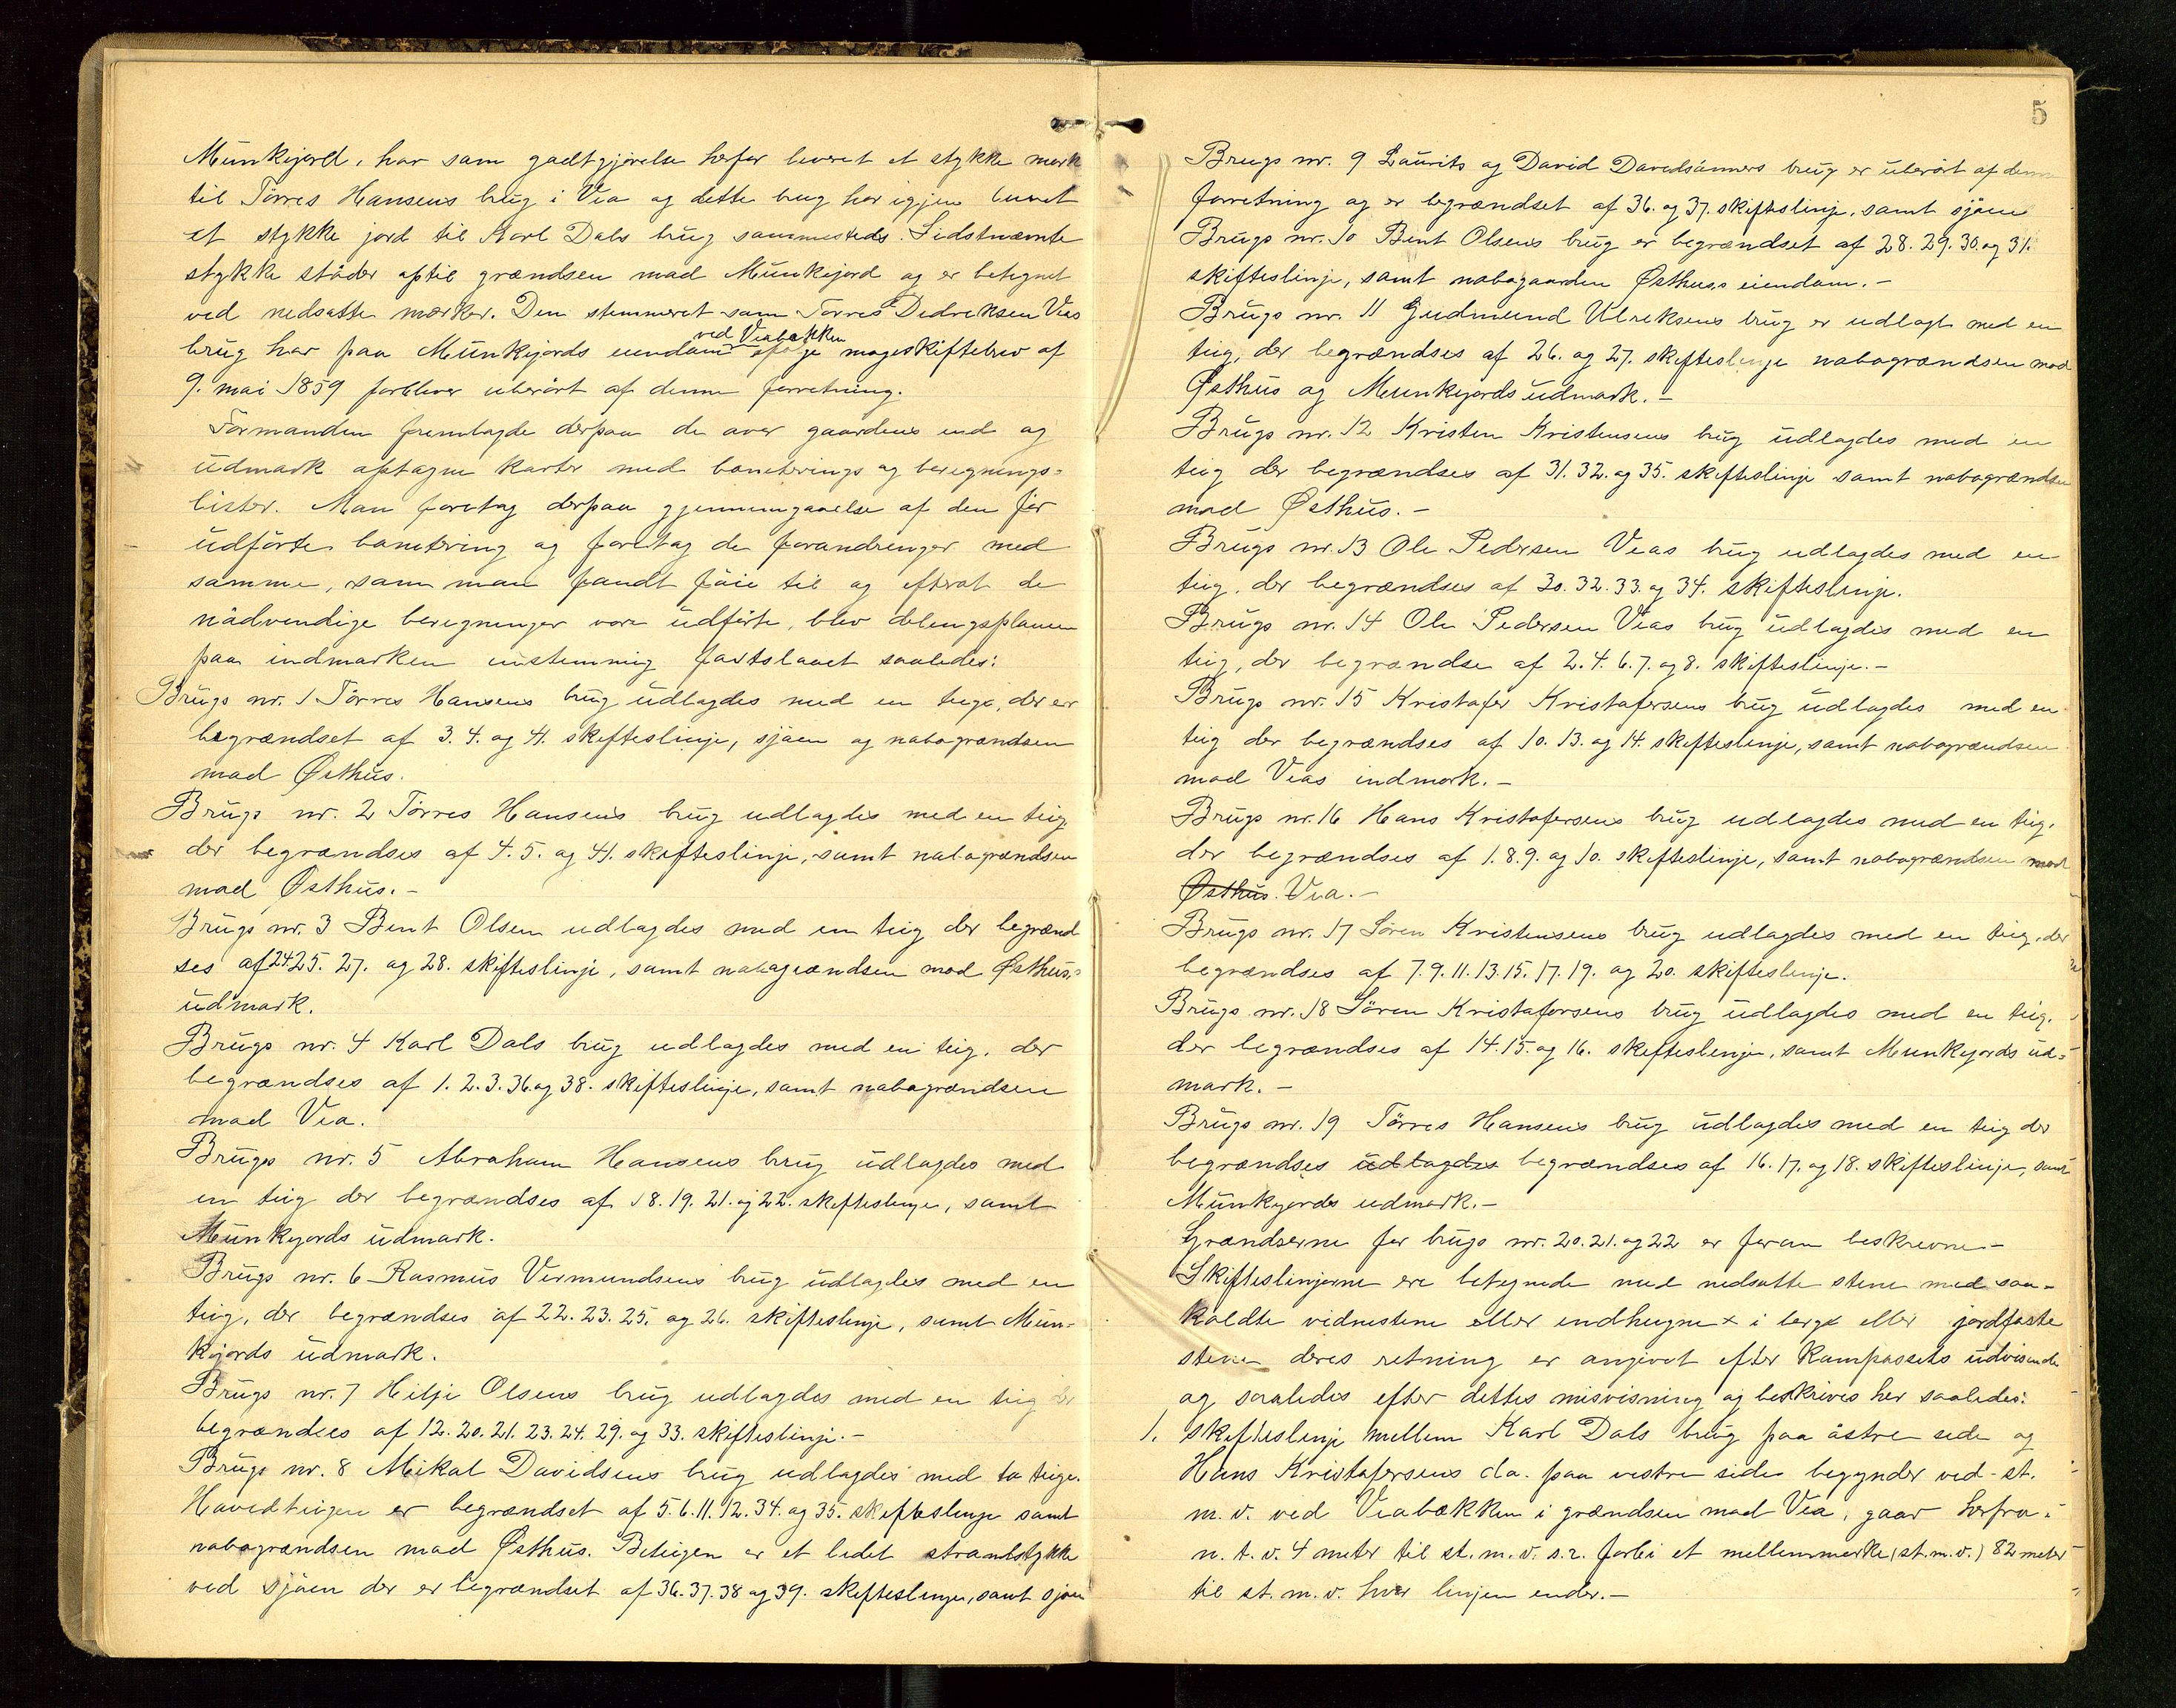 Munkijord, har som godtgjørelse herfor leveret et stykke mark
til Tørres Hansens brug i Vea og dette brug har igjen leveret
et stykke jord til Karl Dals brug sammesteds. Sidstnævnte
stykke støder optil grændsen mod Munkijord og er betegnet
ved nedsatte mærker. Den stemmeret som Tørres Dedreksen Veas
ved Veabækken
brug har paa Munkijords eiendom ifølge mageskiftebrev af
9. mai 1859 forbliver uberørt af denne forretning.
Formanden fremlagde derpaa de over gaardens ind og
udmark optagne karter med boneterings og beregnings-
lister. Man foretog derpaa gjennemgaaelse af den før
udførte bonetering og foretog de forandringer med
samme, som man fandt føie til og efterat de
nødvendige beregninger vare udførte, blev delingsplanen
paa indmarken enstemmig fastslaaet saaledes:
Brugs nr. 1 Tørres Hansens brug udlagdes med en teige, der er
begrændset af 3. 4. og 41. skifteslinje, sjøen og nabogrændsen
mod Østhus.
Brugs nr. 2 Tørres Hansens brug udlagdes med en teig
der begrændses af 4. 5. og 41. skifteslinje, samt nabogrændsen
mod Østhus. -
Brugs nr. 3 Bent Olsen udlagdes med en teig der begrænd
ses af 24. 25. 27. og 28. skifteslinje, samt nabogrændsen mod Østhus,
udmark.
Brugs nr. 4 Karl Dals brug udlagdes med en teig, der
begrændses af 1. 2. 3. 36. og 38. skifteslinje, samt nabogrændsen
mod Vea.
Brugs nr. 5 Abraham Hansens brug udlagdes med
en teig der begrændses af 18. 19. 21. og 22. skifteslinje, samt
Munkyords udmark.
Brugs nr. 6 Rasmus Vermundsens brug udlagdes med en
teig, der begrændses af 22. 23. 25. og 26. skifteslinje, samt Mun-
kijords udmark.
Brugs nr. 7 Hilje Olsens brug udlagdes med en teig der
begrændses af 12. 20. 21. 23. 24. 29. og 33. skifteslinje. -
Brugs nr. 8 Mikal Davidsens brug udlagdes med to teige.
Hovedteigen er begrændset af 5. 6. 11. 12. 34. og 35. skifteslinje samt
nabogrændsen mod Østhus. Beteigen er et lidet strandstykke
ved sjøen der er begrændset af 36. 37. 38 og 39. skifteslinje, samt sjøen
5
Brugs nr. 9 Laurits og David Davidsønners brug er uberørt af denne
forretning og er begrændset af 36. og 37. skifteslinje, samt sjøen
Brugs nr. 10 Bent Olsens brug er begrændset af 28. 29. 30. og 31.
skifteslinje, samt nabogaarden Østhuss eiendom. -
Brugs nr. 11 Gudmund Ulreksens brug er udlagt med en
teig, der begrændses af 26. og 27. skifteslinje nabogrændsen mod
Østhus og Munkyords udmark. -
Brugs nr. 12 Kristen Kristensens brug udlagdes med en
teig der begrændses af 31. 32. og 35. skifteslinje samt nabogrændsen
mod Østhus. -
Brugs nr. 13 Ole Pedersen Veas brug udlagdes med en
teig, der begrændses af 30. 32. 33. og 34. skifteslinje.
Brugs nr. 14 Ole Pedersen Veas brug udlagdes med en
teig, der begrændse af 2. 4. 6. 7. og 8. skifteslinje. -
Brugs nr. 15 Kristofer Kristofersens brug udlagdes med en
teig der begrændses af 10. 13. og 14. skifteslinje, samt nabogrændsen
mod Veas indmark. -
Brugs nr. 16 Hans Kristofersens brug udlagdes med en teig,
der begrændses af 1. 8. 9. og 10. skifteslinje, samt nabogrændsen mod
Østhus. Vea. -
Brugs nr. 17 Søren Kristensens brug udlagdes med en teig, der
begrændses af 7. 9. 11. 13. 15. 17. 19. og 20. skifteslinje.
Brugs nr. 18 Søren Kristofersens brug udlagdes med en teig.
der begrændses af 14. 15. og 16. skifteslinje, samt Munkyords ud-
mark. -
Brugs nr. 19 Tørres Hansens brug udlagdes med en teig der
begrændses udlagdes begrændses af 16. 17. og 18. skifteslinje, samt
Munkyords udmark. -
Grændserne for brugs nr. 20. 21. og 22 er foran beskrevne -
Skifteslinjerne ere betegnede med nedsatte stene med saa-
kaldte vidnestene eller indhugne x i berge eller jordfaste
stene deres retning er angivet efter kampassets udvisende
og saaledes efter dettes misvisning og beskrives her saaledes:
1. skifteslinje mellem Karl Dals brug paa østre side og
Hans Kristofersens do. paa vestre side begynder ved st.
m. v. ved Veabækken i grændsen mod Vea, gaar herfra i
n. t. v. 4 meter til st. m. v. s. r. forbi et mellemmerke (st. m. v.) 82 meter
til st. m. v. hvor linjen ender. -